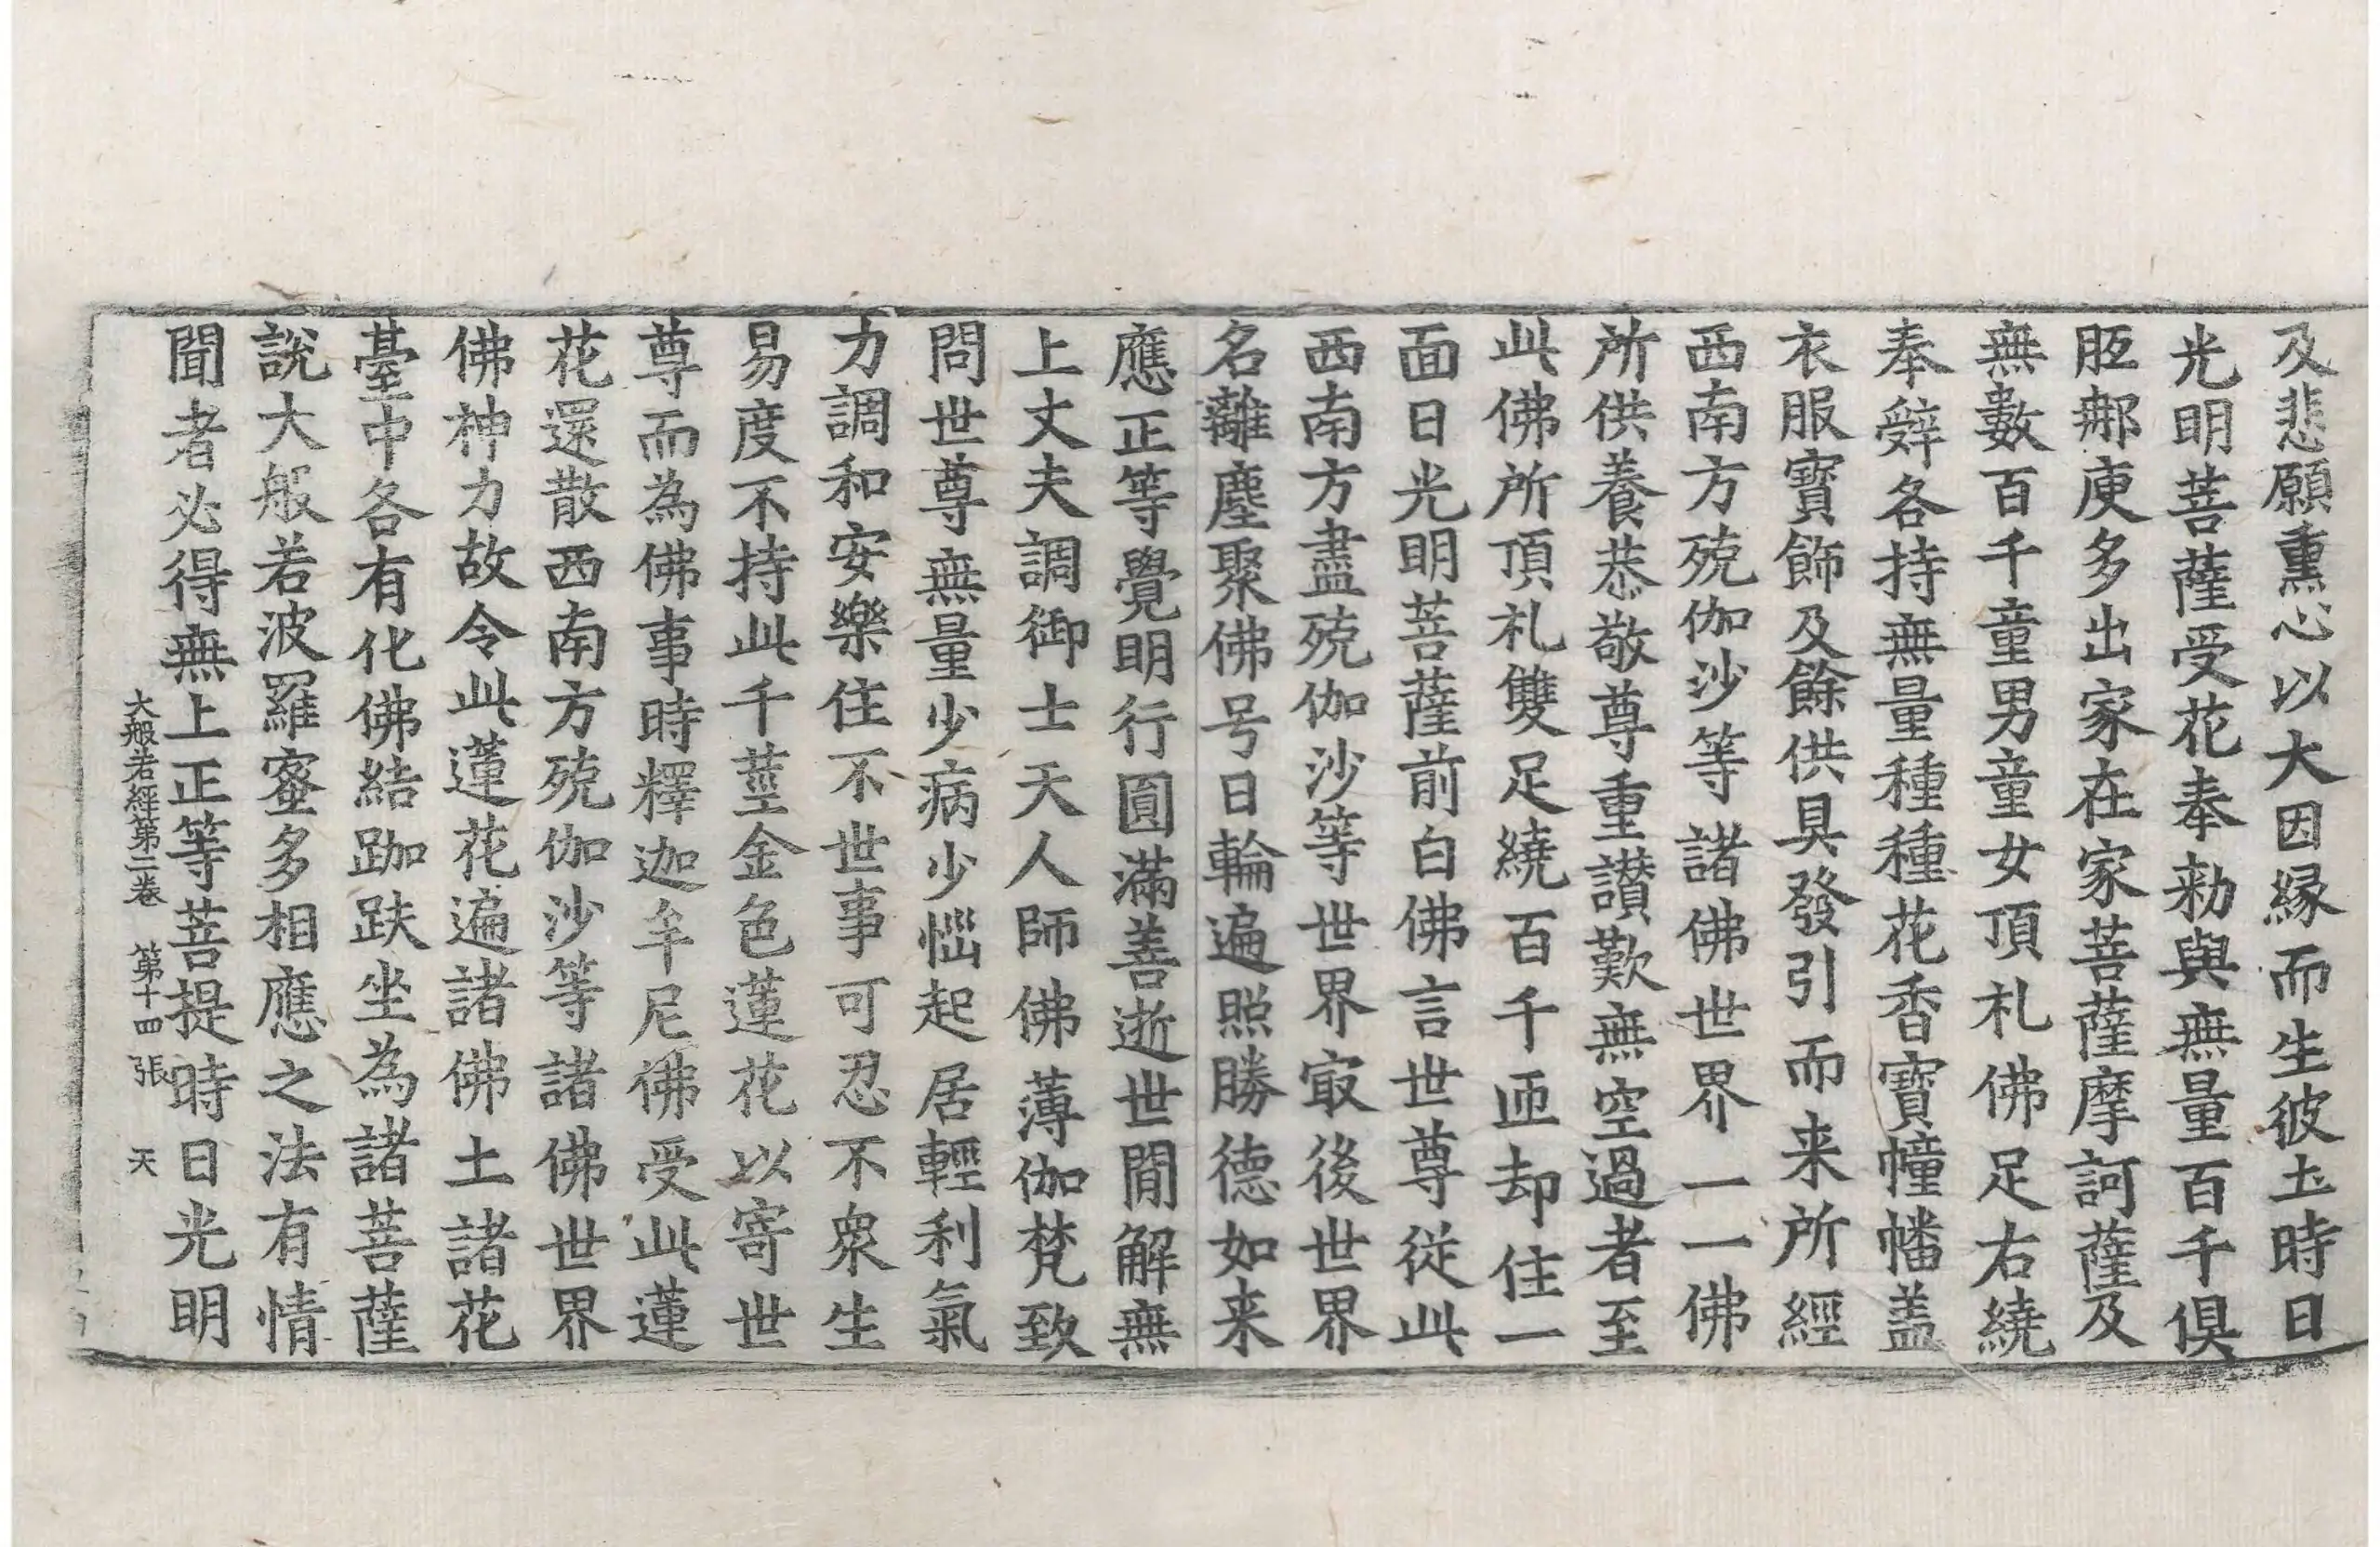 及悲願熏心以大因緣而生彼土時日
光明菩薩受花奉勑與無量百千俱
胝那庾多出家在家菩薩摩訶薩及
無數百千童男童女頂礼佛足右繞
奉辤各持無量種種花香寶幢幡盖
衣服寶飾及餘供具發引而来所經
西南方殑伽沙等諸佛世界一一佛
所供養恭敬尊重讃歎無空過者至
此佛所頂礼雙足繞百千匝却住一
面日光明菩薩前白佛言世尊從此
西南方盡殑伽沙等世界㝡後世界
名離塵聚佛号日輪遍照勝德如来
應正等覺明行圓滿善逝世間解無
上丈夫調御士天人師佛薄伽梵致
問世尊無量少病少惱起居輕利氣
力調和安樂住不世事可忍不衆生
易度不持此千莖金色蓮花以寄世
尊而為佛事時釋迦牟尼佛受此蓮
花還散西南方殑伽沙等諸佛世界
佛神力故令此蓮花遍諸佛土諸花
臺中各有化佛結跏趺坐為諸菩薩
說大般若波羅蜜多相應之法有情
聞者必得無上正等菩提時日光明
大般若經第二卷　第十四張　天